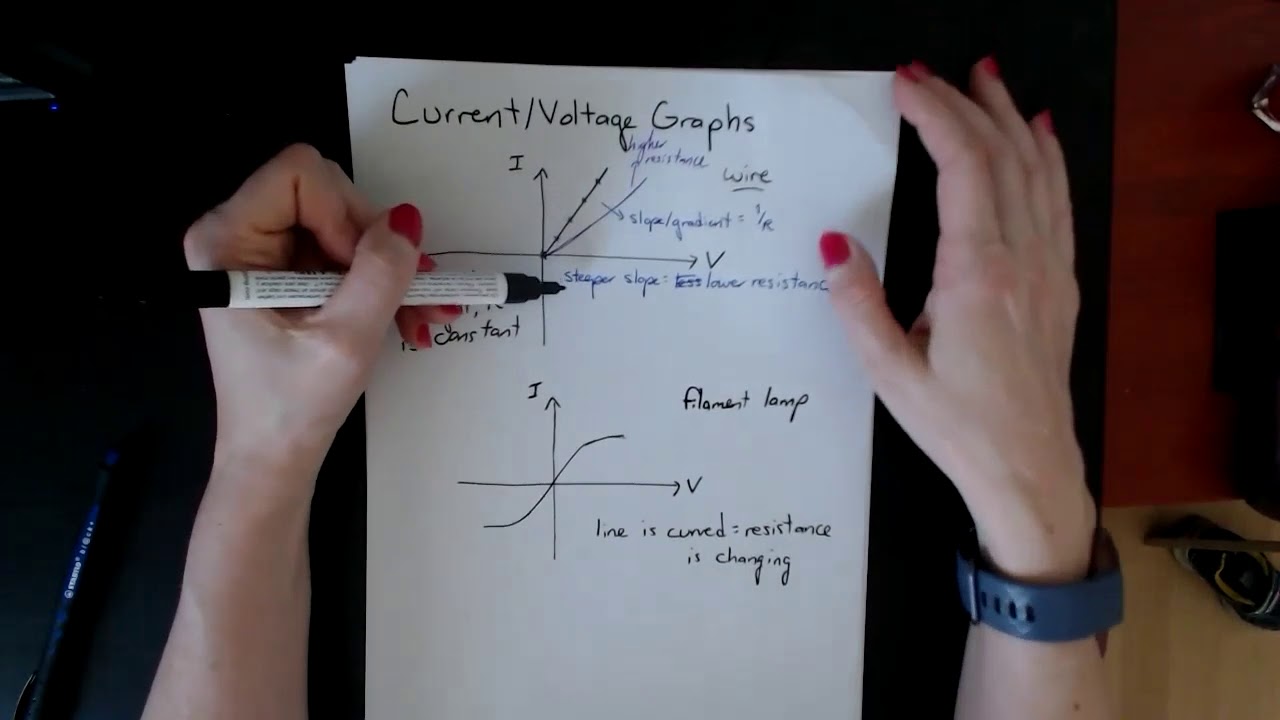 Current/Voltage Graphs
higher
resistance
I
wire
slope/gradient = 1/R
V
steeper slope = less lower resistance
is constant
I
filament lamp
V
line is curved = resistance
is changing
STAEDTLER